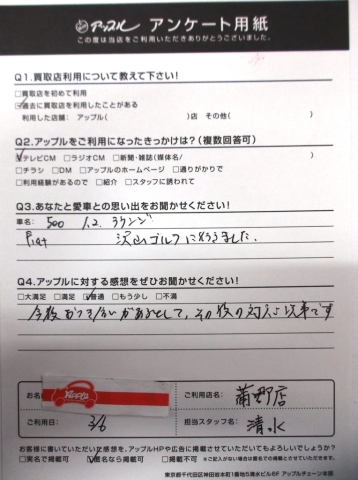 アップル アンケート用紙
この度は当店をご利用いただきありがとうございました。
Q1.買取店利用について教えて下さい!
□買取店を初めて利用
☑過去に買取店を利用したことがある
利用した店舗: アップル( )店 その他( )
Q2.アップルをご利用になったきっかけは?(複数回答可)
☑テレビCM □ラジオCM □新聞・雑誌(媒体名/ )
□チラシ □DM □アップルのホームページ □通りがかりで
□利用経験があるので □紹介 □スタッフに誘われて
Q3.あなたと愛車との思い出をお聞かせください!
車名: 500 1.2. ラウンジ
Fiat 沢山ゴルフに行きました.
Q4.アップルに対する感想をぜひお聞かせください!
□大満足 □満足 ☑普通 □もう少し □不満
その後の対応次第です
お名
アップル
ご利用店名:
ご利用日: 3/6
担当スタッフ名: 清水
お客様に書いていただいた感想を、アップルHPや広告に掲載させていただいてもよろしいでしょうか?
□実名で掲載可 ☑匿名なら掲載可 □掲載不可 ※ご記入がない場合は匿名での掲載とさせていただきます。
東京都千代田区神田岩本町1番地5清水ビル6F アップルチェーン本部